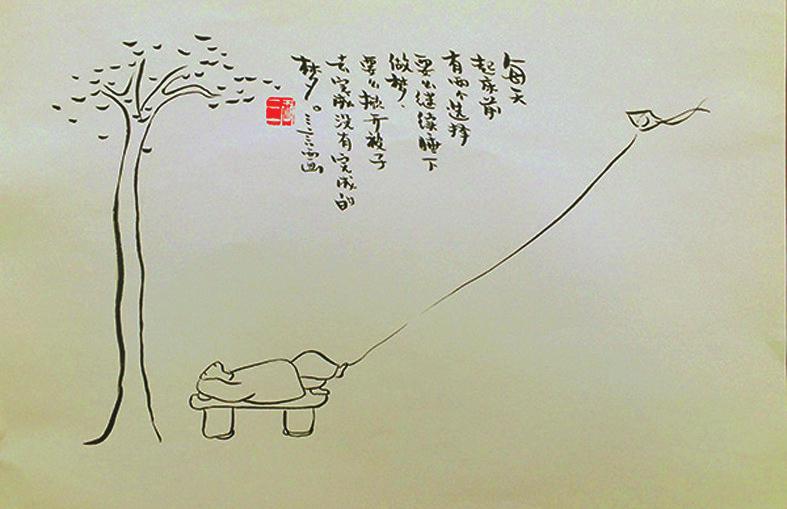 每天
起床前
有两个选择
要么继续睡下
做梦、
要么掀开被子
去完成没有完成的
梦。三言画